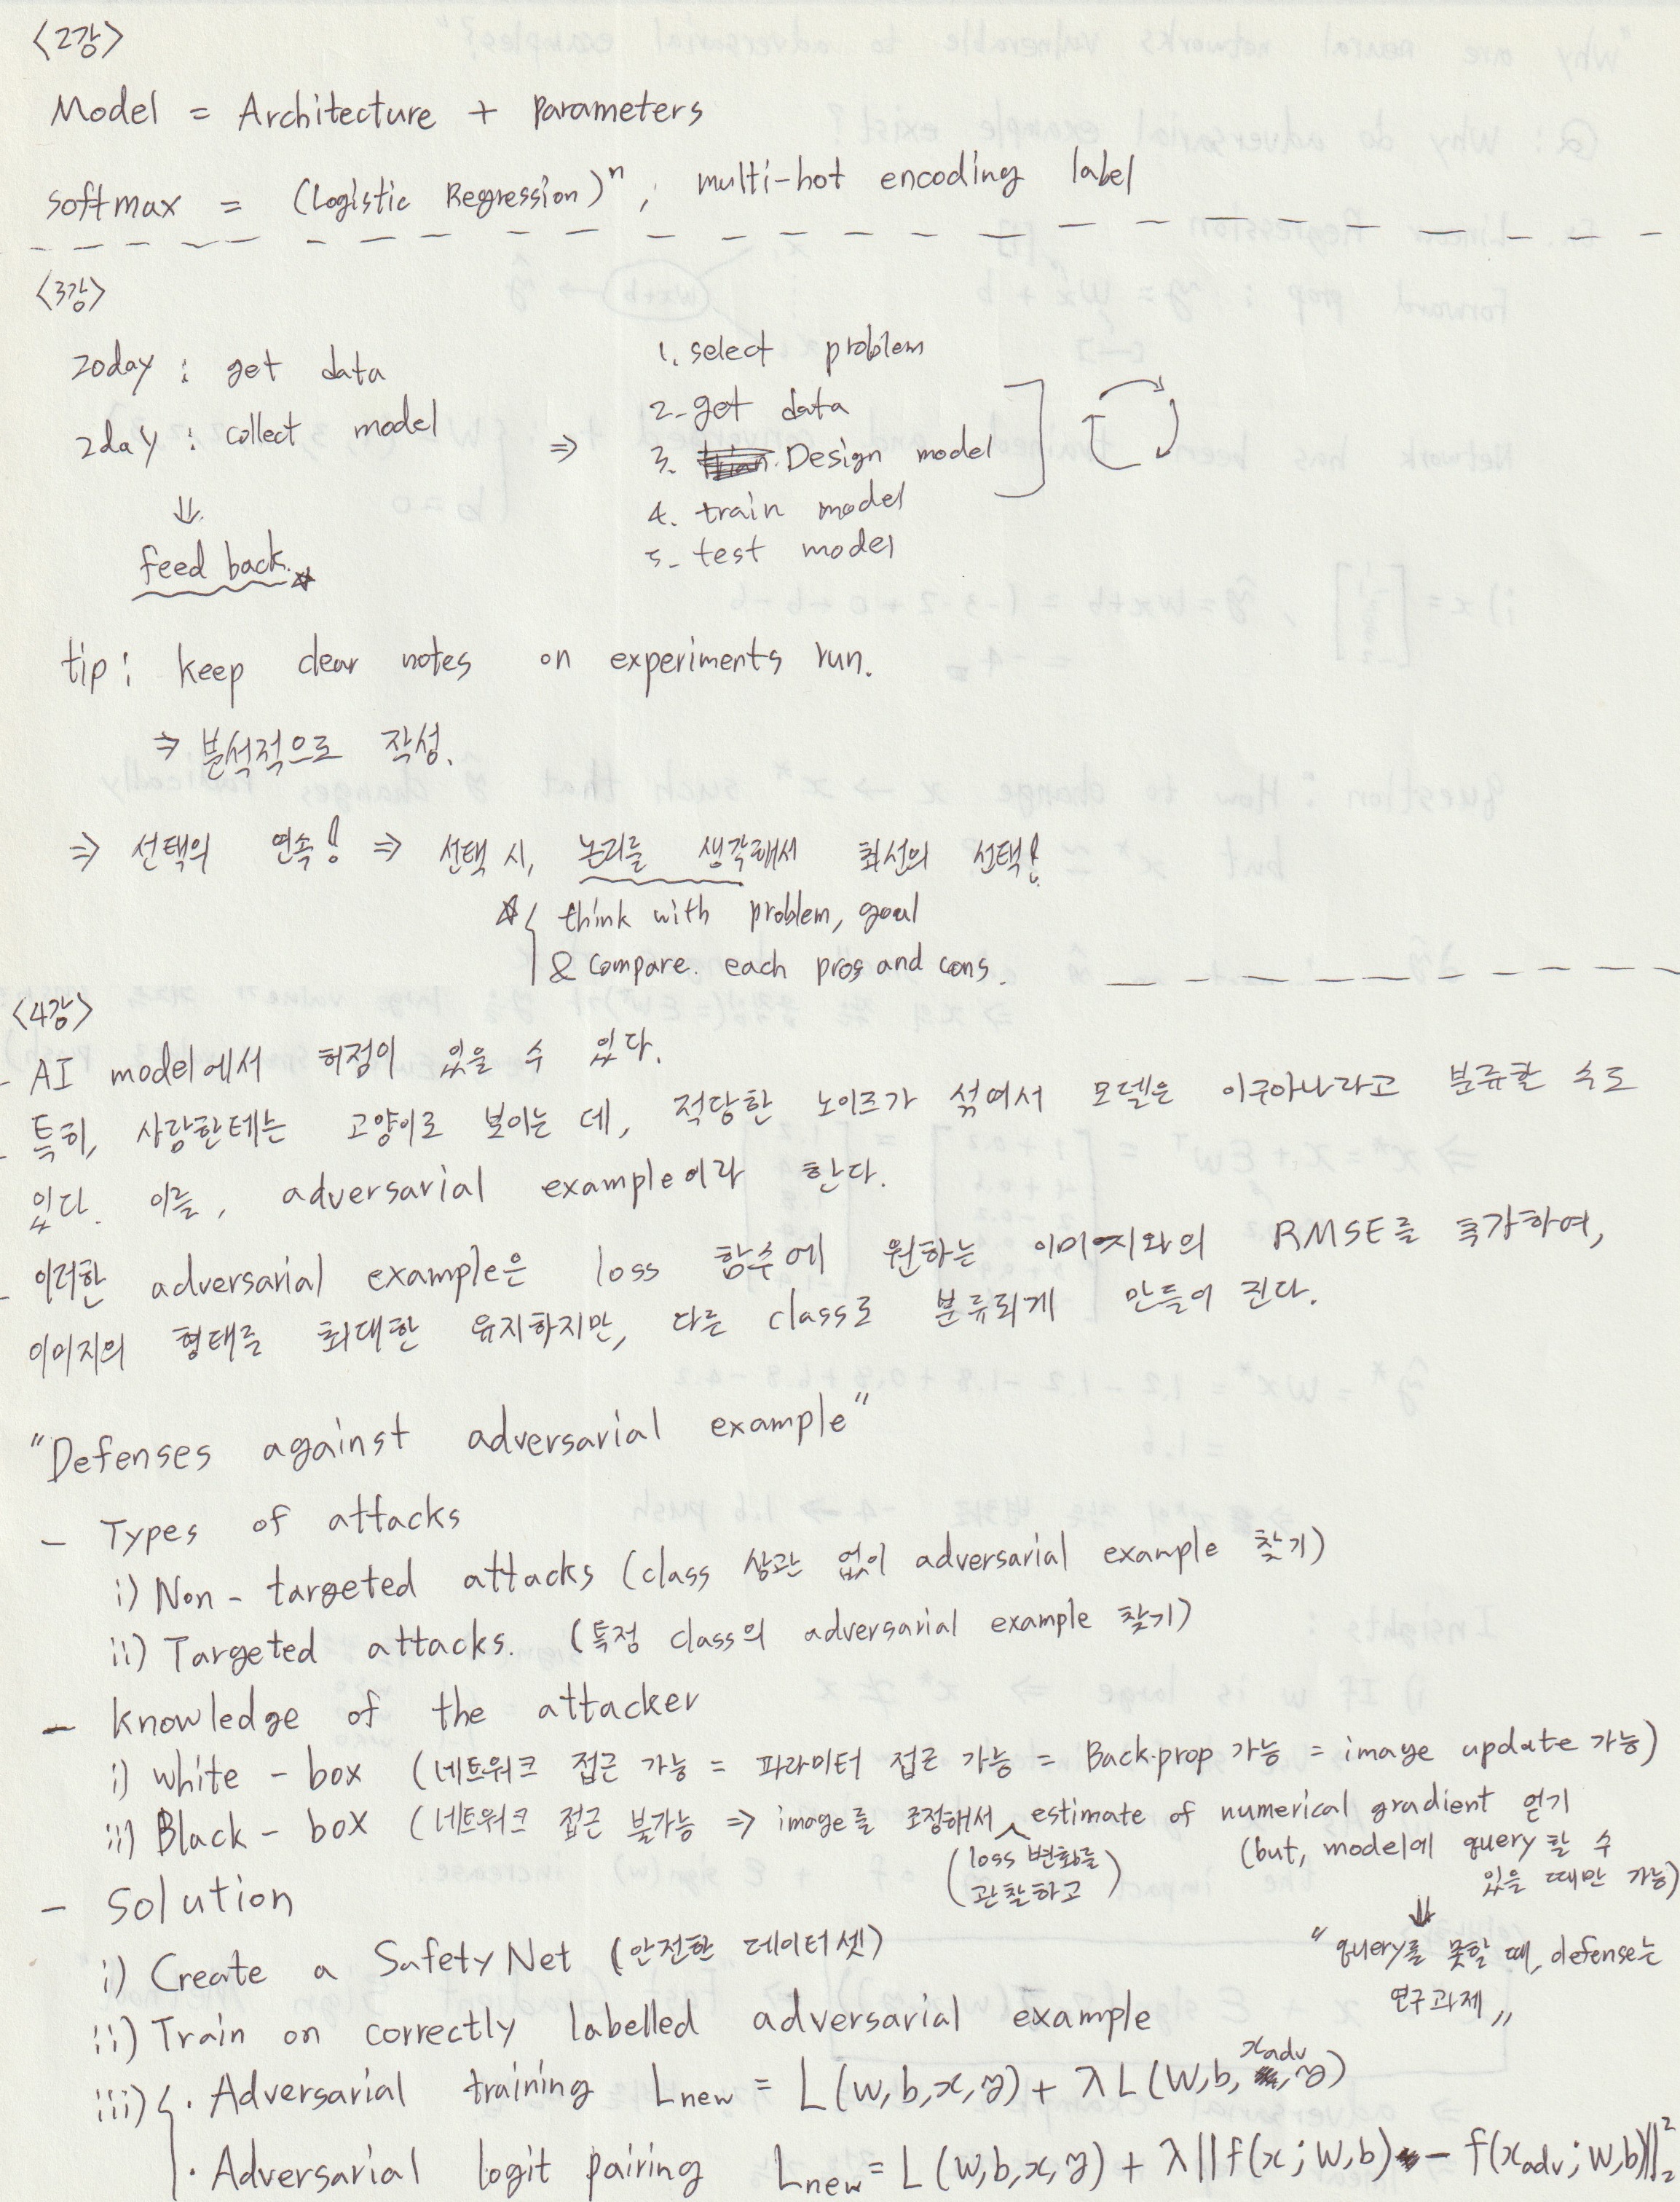 <2강>
Model = Architecture + Parameters
softmax = (Logistic Regression)ⁿ ; multi-hot encoding label
<3강>
20day : get data
2day : collect model
⇓
feed back.☆
⇒
1. select problem
2. get data
3. Design model
4. train model
5. test model
tip : keep clear notes on experiments run.
⇒ 분석적으로 작성.
⇒ 선택의 연속! ⇒ 선택 시, 논리를 생각해서 최선의 선택!
☆{ think with problem, goal
& compare. each pros and cons.
<4강>
- AI model에서 허점이 있을 수 있다.
- 특히, 사람한테는 고양이로 보이는 데, 적당한 노이즈가 섞여서 모델은 이구아나라고 분류할 수도
있다. 이를, adversarial example이라 한다.
- 이러한 adversarial example은 loss 함수에 원하는 이미지와의 RMSE를 추가하여,
이미지의 형태를 최대한 유지하지만, 다른 class로 분류되게 만들어 진다.
"Defenses against adversarial example"
- Types of attacks
i) Non-targeted attacks (class 상관 없이 adversarial example 찾기)
ii) Targeted attacks. (특정 class의 adversarial example 찾기)
- knowledge of the attacker
i) white-box (네트워크 접근 가능 = 파라미터 접근 가능 = Back-prop 가능 = image update 가능)
ii) Black-box (네트워크 접근 불가능 ⇒ image를 조정해서 estimate of numerical gradient 얻기
(loss 변화를
관찰하고)
(but, model에 query 할 수
있을 때만 가능)
⇓
"query를 못할 때, defense는
연구과제"
- Solution
i) Create a SafetyNet (안전한 데이터셋)
ii) Train on correctly labelled adversarial example
iii) { · Adversarial training L_new = L(W,b,x,y) + λL(W,b,x_adv,y)
· Adversarial logit pairing L_new = L(W,b,x,y) + λ||f(x;W,b) - f(x_adv;W,b)||₂²